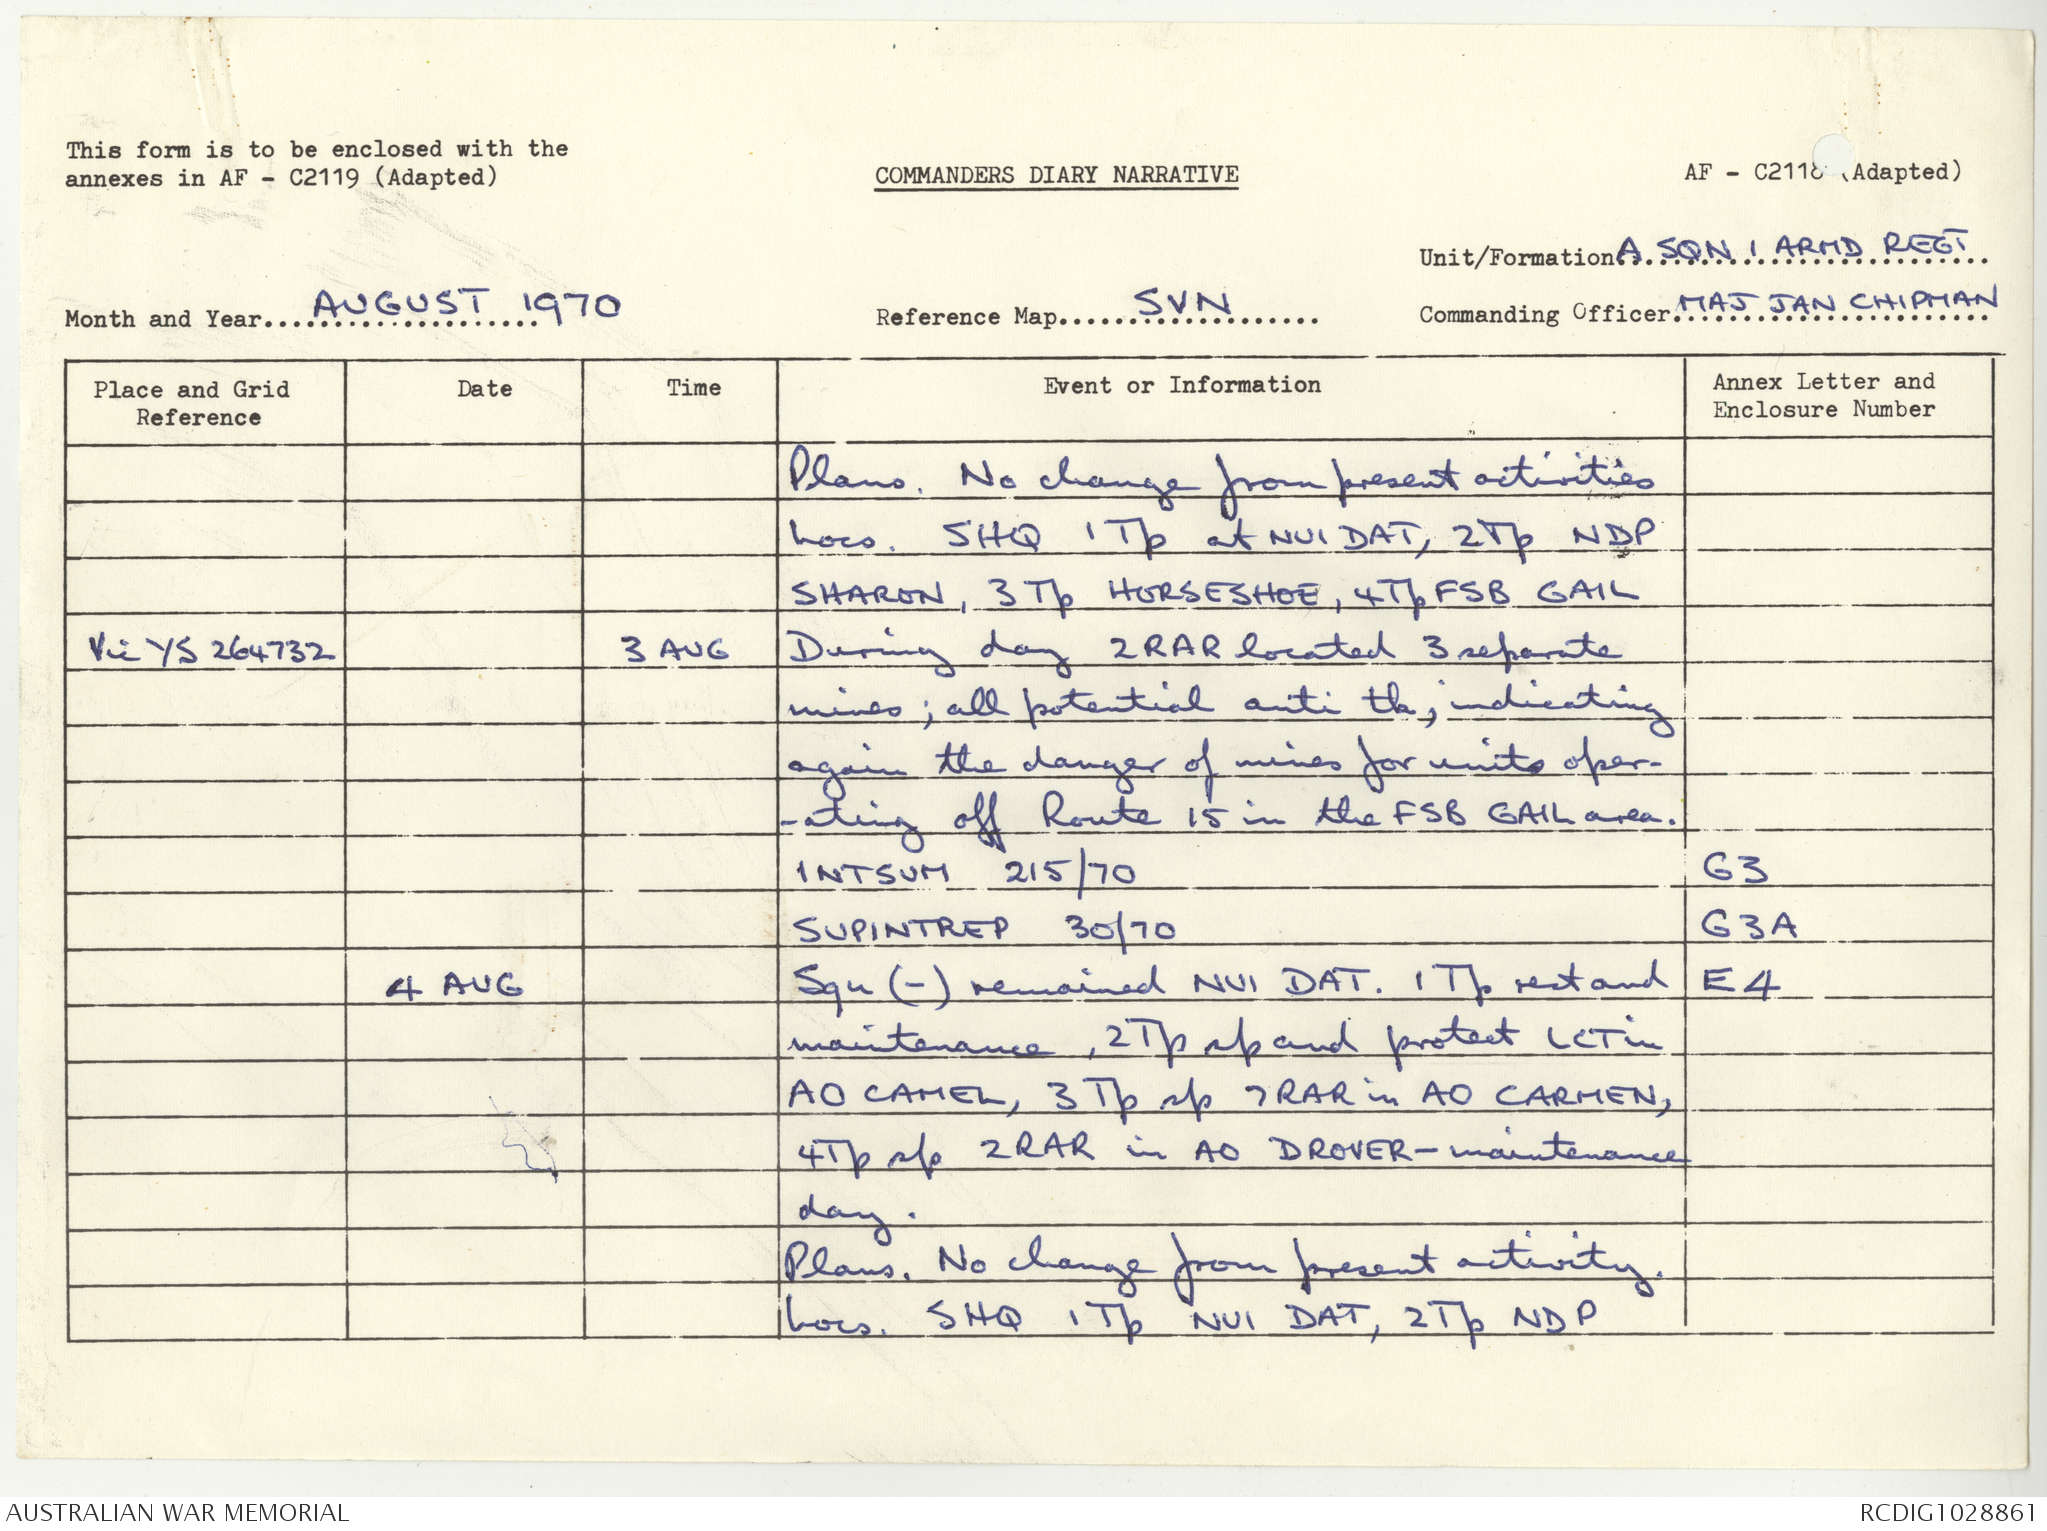 This form is to be enclosed with the
annexes in AF - C2119 (Adapted)
COMMANDERS DIARY NARRATIVE
AF - C2118 (Adapted)
Unit/Formation A SQN 1 ARMD REGT
Month and Year AUGUST 1970
Reference Map SVN
Commanding Officer MAJ JAN CHIPMAN
Place and Grid Reference
Date
Time
Event or Information
Annex Letter and Enclosure Number
Plans. No change from present activities
Locs. SHQ 1 Tp at NUI DAT, 2Tp NDP
SHARON, 3 Tp HORSESHOE, 4Tp FSB GAIL
Vic YS 264732 3 AUG During day 2RAR located 3 separate
mines; all potential anti tk; indicating
again the danger of mines for units oper-
-ating off Route 15 in the FSB GAIL area.
INTSUM 215/70 G3
SUPINTREP 30/70 G3A
4 AUG Sqn (-) remained NUI DAT. 1 Tp rest and E4
maintenance, 2Tp sp and protect LCT in
AO CAMEL, 3 Tp sp 7RAR in AO CARMEN,
4Tp sp 2RAR in AO DROVER - maintenance
day.
Plans. No change from present activity.
Locs. SHQ 1 Tp NUI DAT, 2Tp NDP
AUSTRALIAN WAR MEMORIAL
RCDIG1028861